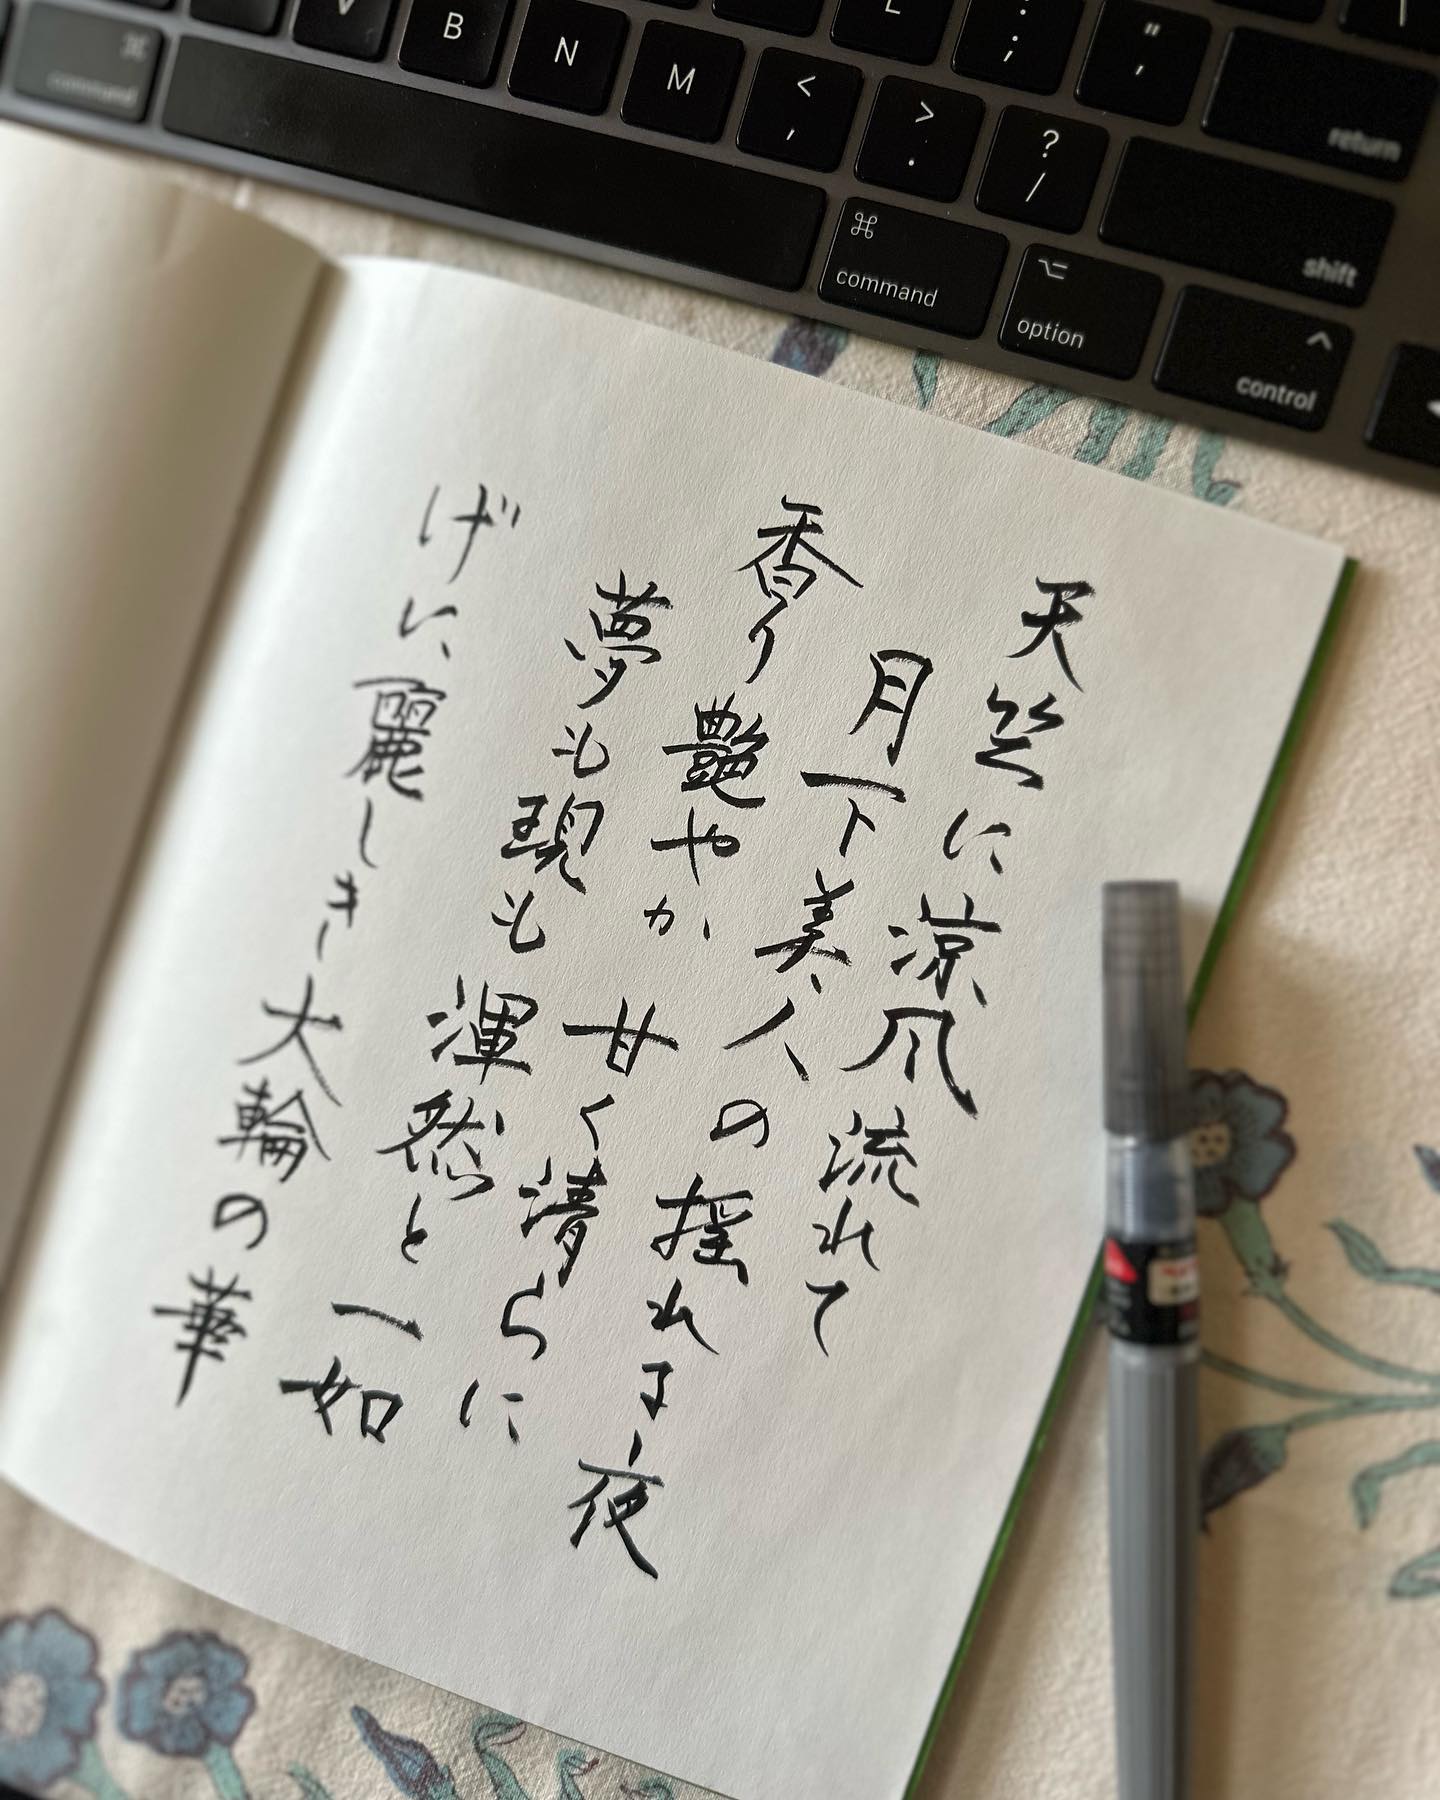 V B N M < , > . ? /
L : ; " ' return
shift
⌘ command
⌘ command ⌥ option ^ control
天竺に涼風流れて
月下美人の揺れる夜
香り艶やか 甘く清らに
夢も現も 渾然と一如
げに麗しき大輪の華